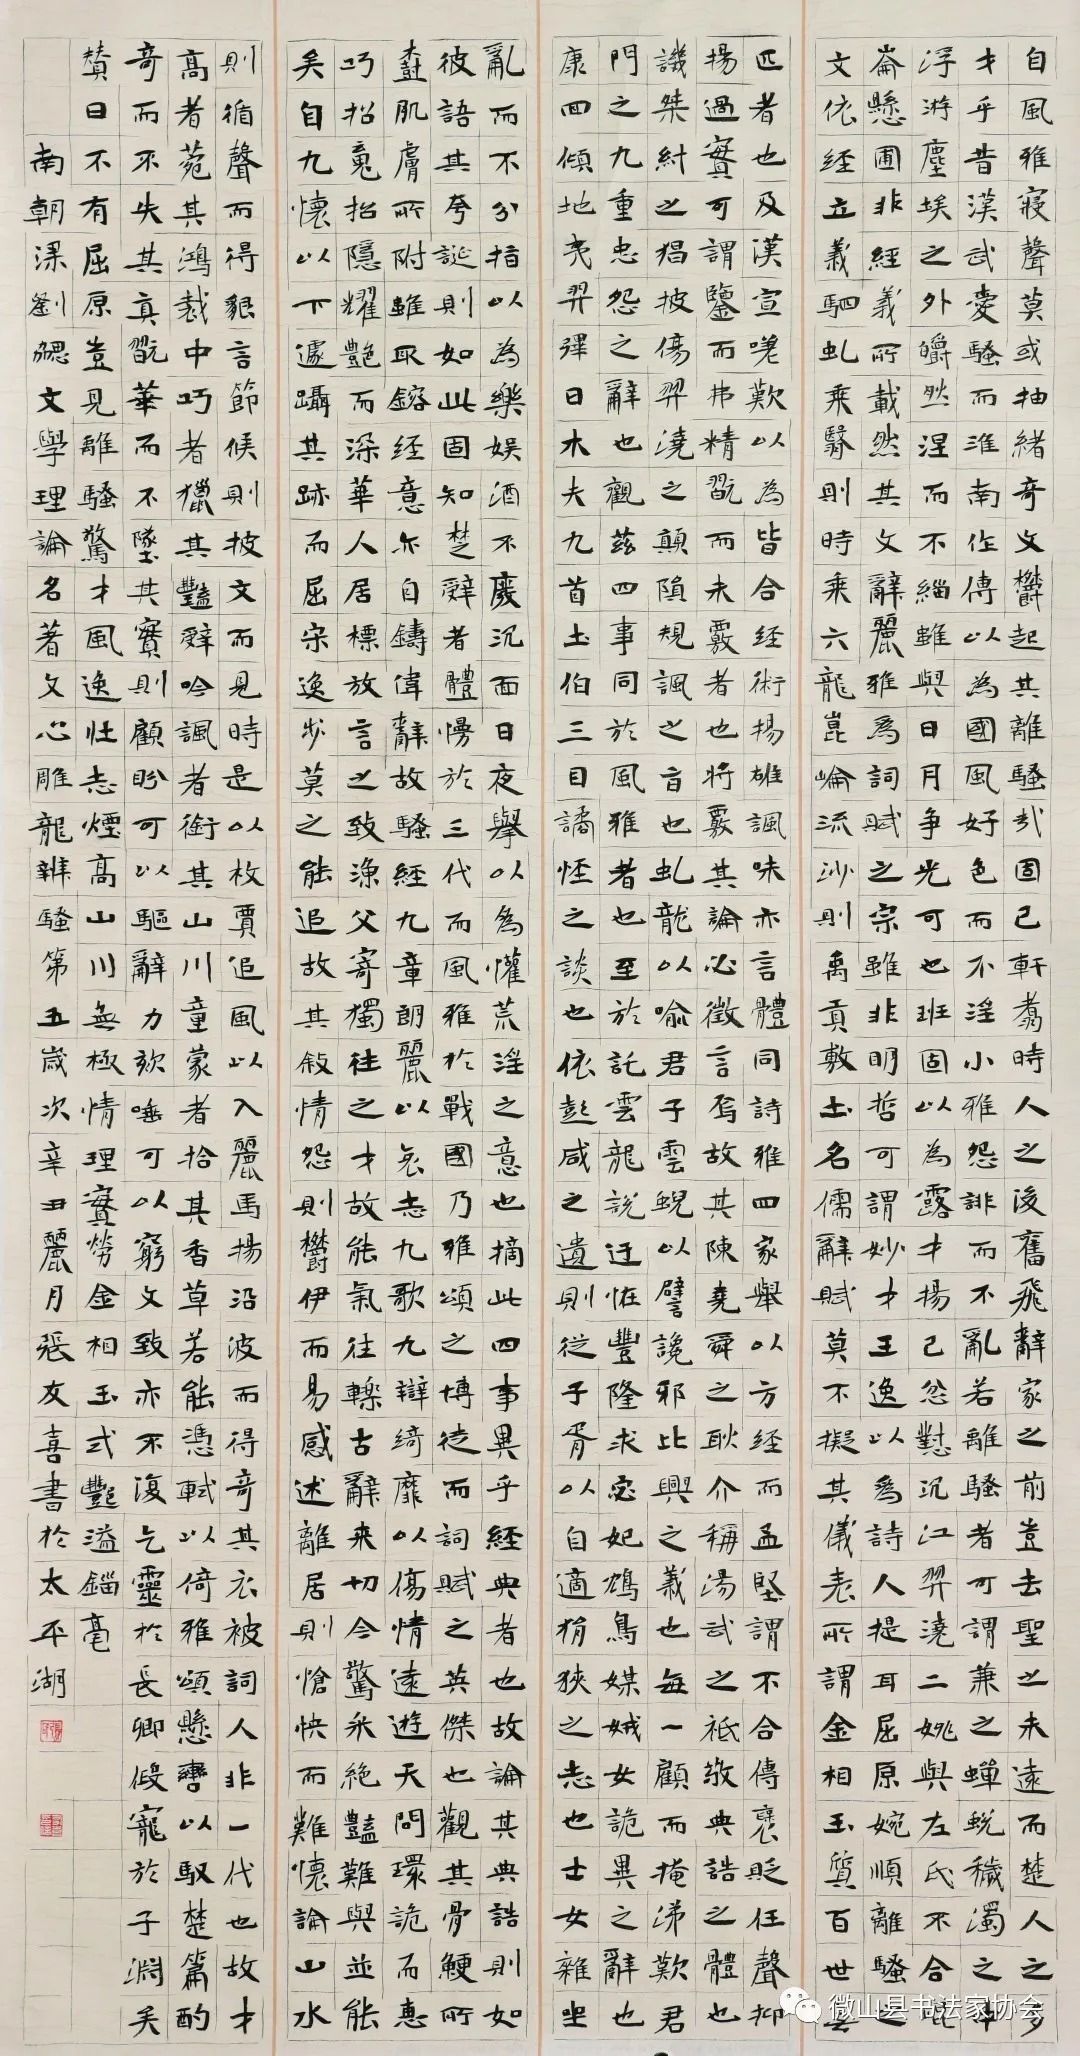 自風雅寢聲莫或抽緒奇文欝起其離騷哉固已軒翥時人之後奮飛辭家之前豈去聖之未遠而楚人之多
才乎昔漢武愛騷而淮南作傳以為國風好色而不淫小雅怨誹而不亂若離騷者可謂兼之蟬蛻穢濁之中
浮游塵埃之外皭然涅而不緇雖與日月争光可也班固以為露才揚己忿懟沉江羿澆二姚與左氏不合崐
崙懸圃非經義所載然其文辭麗雅為詞賦之宗雖非明哲可謂妙才王逸以為詩人提耳屈原婉順離騷之
文依經立義駟虬乘翳則時乘六龍崑崘流沙則禹貢敷土名儒辭賦莫不擬其儀表所謂金相玉質百世無
匹者也及漢宣嗟歎以為皆合經術揚雄諷味亦言體同詩雅四家舉以方經而孟堅謂不合傳褒貶任聲抑
揚過實可謂鑒而弗精翫而未覈者也將覈其論必徵言焉故其陳堯舜之耿介稱湯武之祗敬典誥之體也
譏桀紂之猖披傷羿澆之顛隕規諷之旨也虬龍以喻君子雲蜺以譬讒邪比興之義也每一顧而掩涕歎君
門之九重忠怨之辭也觀茲四事同於風雅者也至於託雲龍說迂怪豐隆求宓妃鴆鳥媒娀女詭異之辭也
康四傾地夷羿彈日木夫九首土伯三目譎怪之談也依彭咸之遺則從子胥以自適狷狹之志也士女雜坐
亂而不分指以為樂娛酒不廢沉面日夜舉以為懽荒淫之意也摘此四事異乎經典者也故論其典誥則如
彼語其夸誕則如此固知楚辭者體慢於三代而風雅於戰國乃雅頌之博徒而詞賦之英傑也觀其骨鯁所
尌肌膚所附雖取鎔經意亦自鑄偉辭故騷經九章朗麗以哀志九歌九辯綺靡以傷情遠遊天問環詭而惠
巧招䰟招隱耀艷而深華人居標放言之致漁父寄獨往之才故能氣往轢古辭来切今驚采絕豔難與並能
矣自九懷以下遽躡其跡而屈宋逸步莫之能追故其敘情怨則欝伊而易感述離居則愴快而難懷論山水
則循聲而得貌言節候則披文而見時是以枚賈追風以入麗馬揚沿波而得奇其衣被詞人非一代也故才
高者菀其鴻裁中巧者獵其豔辭吟諷者銜其山川童蒙者拾其香草若能憑軾以倚雅頌懸轡以馭楚篇酌
奇而不失其真翫華而不墜其實則顧盼可以驅辭力欬唾可以窮文致亦不復乞靈於長卿假寵於子淵矣
贊曰不有屈原豈見離騷驚才風逸壯志煙高山川無極情理實勞金相玉式豔溢錙毫
南朝梁劉勰文學理論名著文心雕龍辨騷第五歲次辛丑麗月張友喜書於太平湖
微山县书法家协会